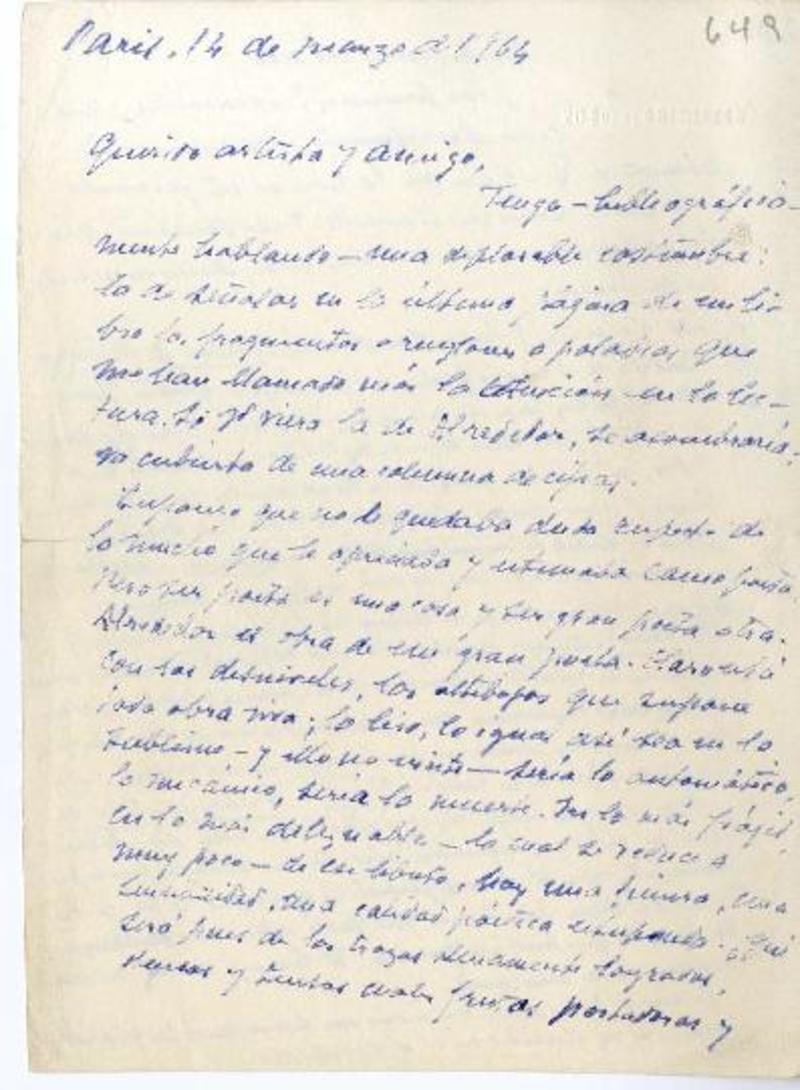 649
Paris, 14 de marzo d 1964
Querido artista y amigo,
Tengo – bibliográfica-
mente hablando – una deplorable costumbre:
la de señalar en la última página de un li-
bro los fragmentos o renglones o palabras que
me han llamado más la atención en la lec-
tura. Si Vd viera la de Alrededor, se asombraría:
va cubierta de una columna de cifras.
Supongo que no le quedaba duda respecto de
lo mucho que le apreciaba y estimaba como poeta.
Pero ser poeta es una cosa y ser gran poeta otra.
Alrededor es obra de un gran poeta. Claro está
con los desniveles, los altibajos que supone
toda obra viva; lo liso, lo igual así sea en lo
sublime – y ello no existe – sería lo automático,
lo mecánico, sería la muerte. En lo más frágil,
en lo más deleznable – lo cual se reduce a
muy poco – de su libro, hay una finura, una
una calidad poética estupenda. Qué
será pues de los trozos plenamente logrados,
densos y frutos portadores y